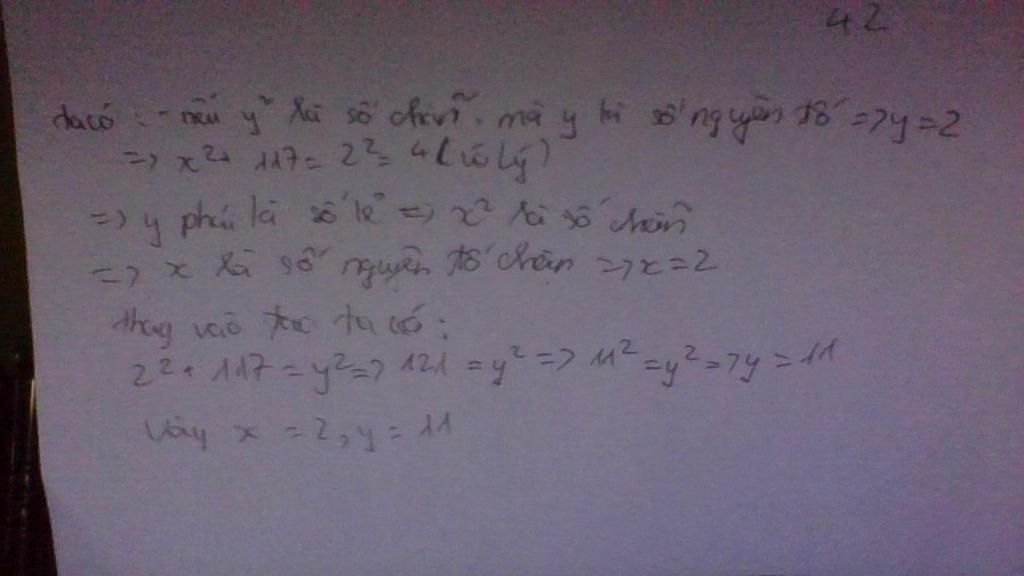 42
ta có : - nếu y² là số chẵn. mà y là số nguyên tố => y = 2
=> x² + 117 = 2² = 4 (vô lý)
=> y phải là số lẻ => x² là số chẵn
=> x là số nguyên tố chẵn => x = 2
thay vào ta có :
2² + 117 = y² => 121 = y² => 11² = y² => y = 11
Vậy x = 2, y = 11